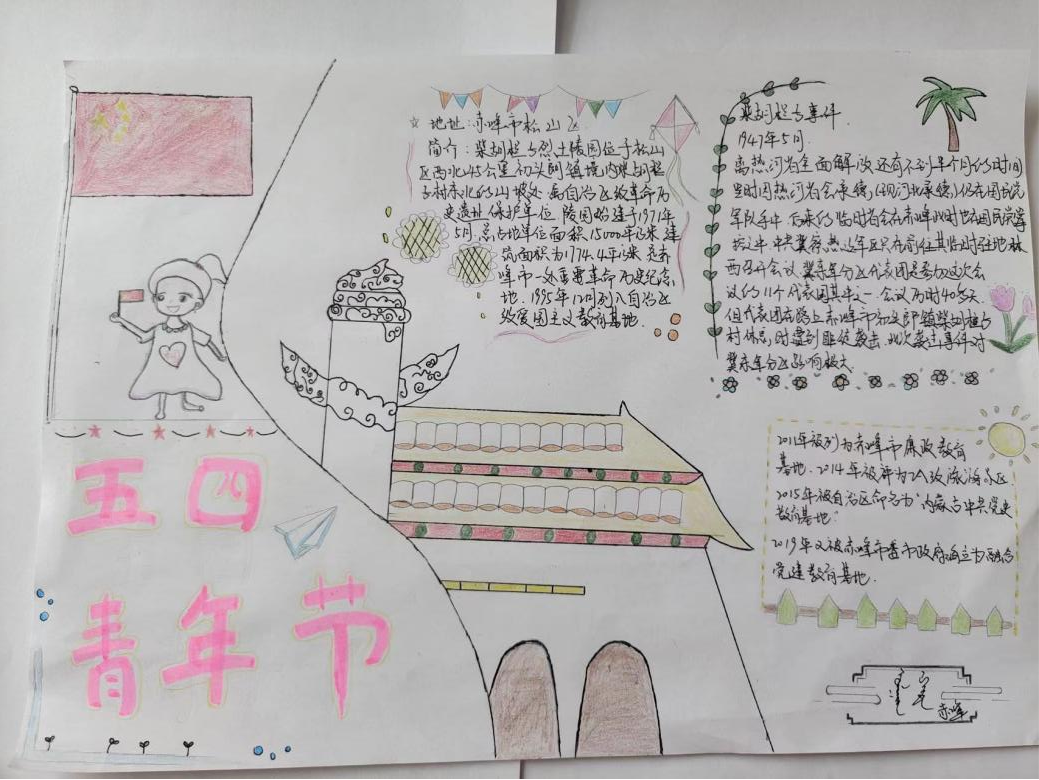 五四
青年节
地址:赤峰市松山区
简介:柴胡栏子烈士陵园位于松山
区西北45公里初头朗镇境内柴胡栏
子村东北的山坡处 属自治区级革命历
史遗址保护单位 陵园始建于1971年
5月.总占地单位面积15000平方米 建
筑面积为1774.4平方米 是赤
峰市一处重要革命历史纪念
地.1995年12月列入自治区
级爱国主义教育基地.
柴胡栏子事件
1947年5月.
离热河省全面解放还有不到半个月的时间
当时因热河省会承德(现河北承德)仍在国民党
军队手中 后来的临时省会在赤峰此时也在国民党掌
控之中 中共冀察热辽军区只有前往其临时驻地林
西召开会议 冀东军分区代表团是参加这次会
议的11个代表团其中之一.会议历时40多天
但代表团在路上赤峰市初头朗镇柴胡栏子
村休息时遭到匪徒袭击.此次袭击事件对
冀东军分区影响极大
2011年被列为赤峰市廉政教育
基地.2014年被评为2A级旅游景区.
2015年被自治区命名为"内蒙古中共党史
教育基地"
2019年又被赤峰市委市政府确立为融合
党建教育基地.
赤峰